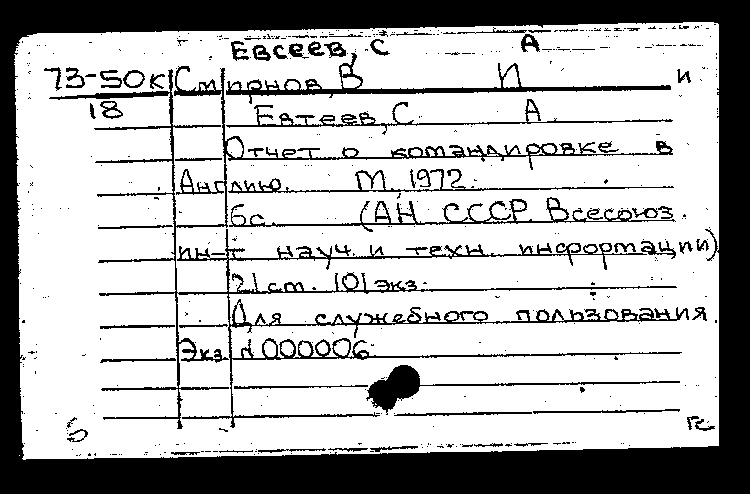 Евсеев, С А
73-50к Смирнов, В И и
18 Евтеев, С А
Отчет о командировке в
Англию. М, 1972.
6с. (АН СССР Всесоюз.
ин-т науч и техн. информации)
21см. 101 экз.
Для служебного пользования.
Экз N 000006
б